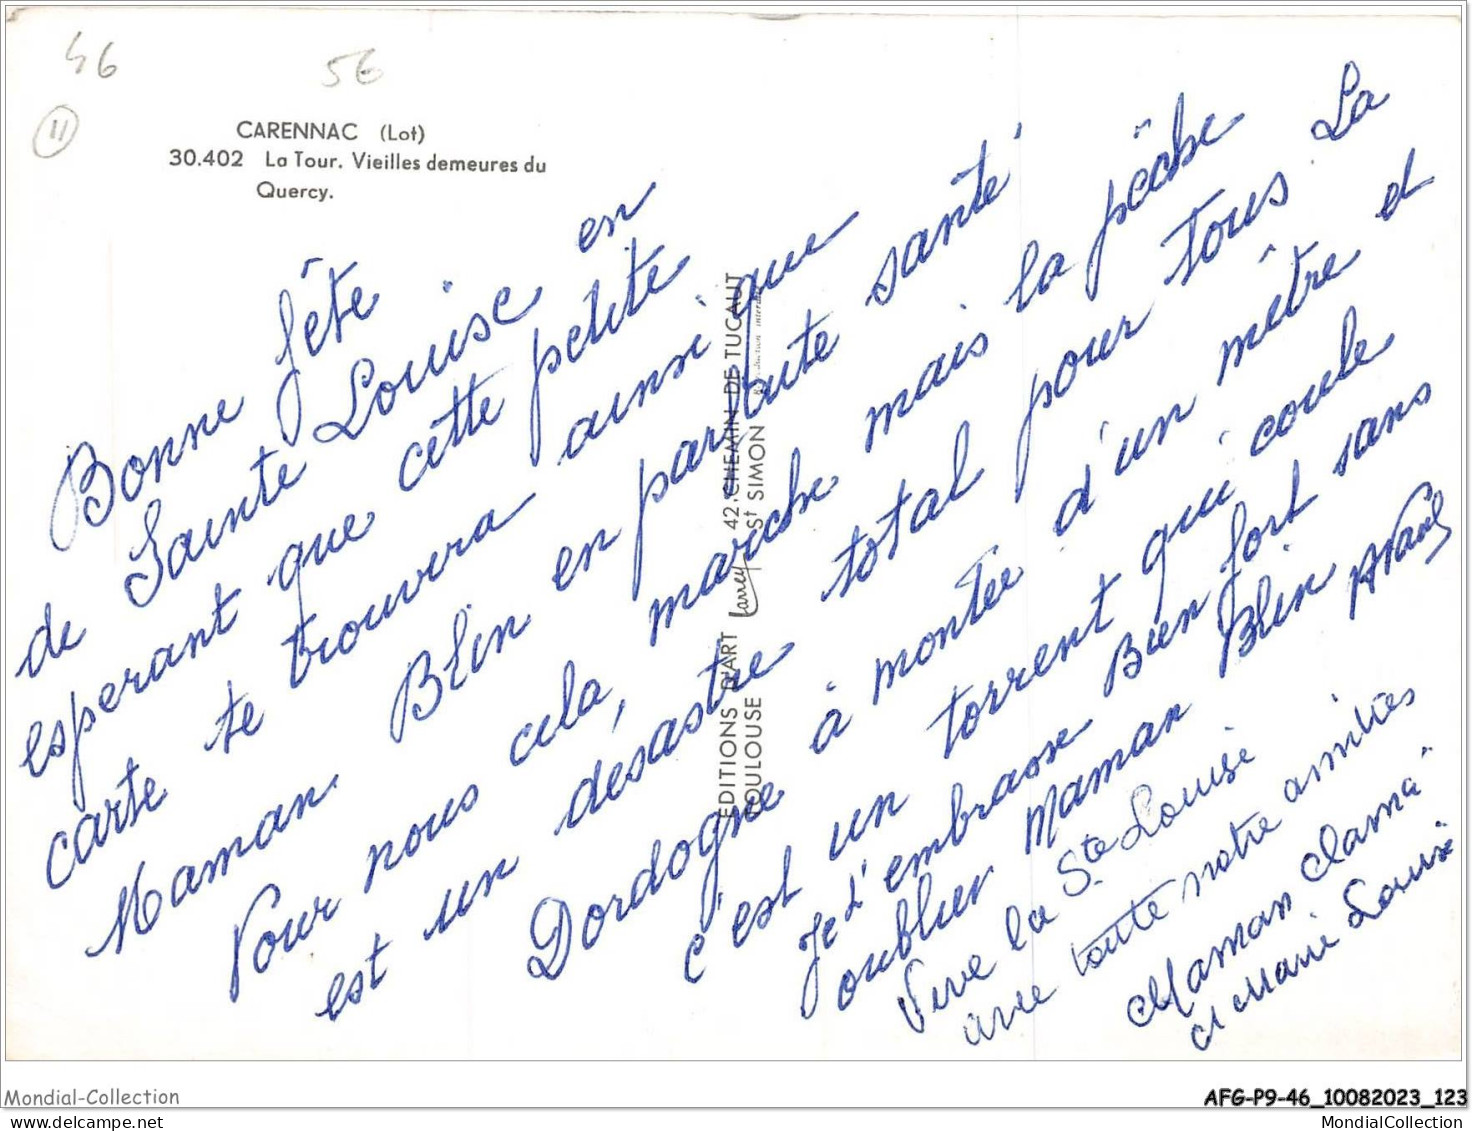 46
56
11
CARENNAC (Lot)
30.402 La Tour. Vieilles demeures du
Quercy.
Bonne fête
de Sainte Louise en
esperant que cette petite
carte te trouvera ainsi que
Maman Blin en parfaite santé
Pour nous cela, marche mais la pêche
est un désastre total pour tous La
Dordogne à montée d'un mètre et
c'est un torrent qui coule
Je t'embrasse Bien fort sans
oublier Maman Blin
Vive la Ste Louise
avec toute notre amitiés
Maman
et Marie Louise
EDITIONS D'ART Larrey 42. CHEMIN DE TUCAUT
TOULOUSE St SIMON
Mondial-Collection
AFG-P9-46_10082023_123
MondialCollection